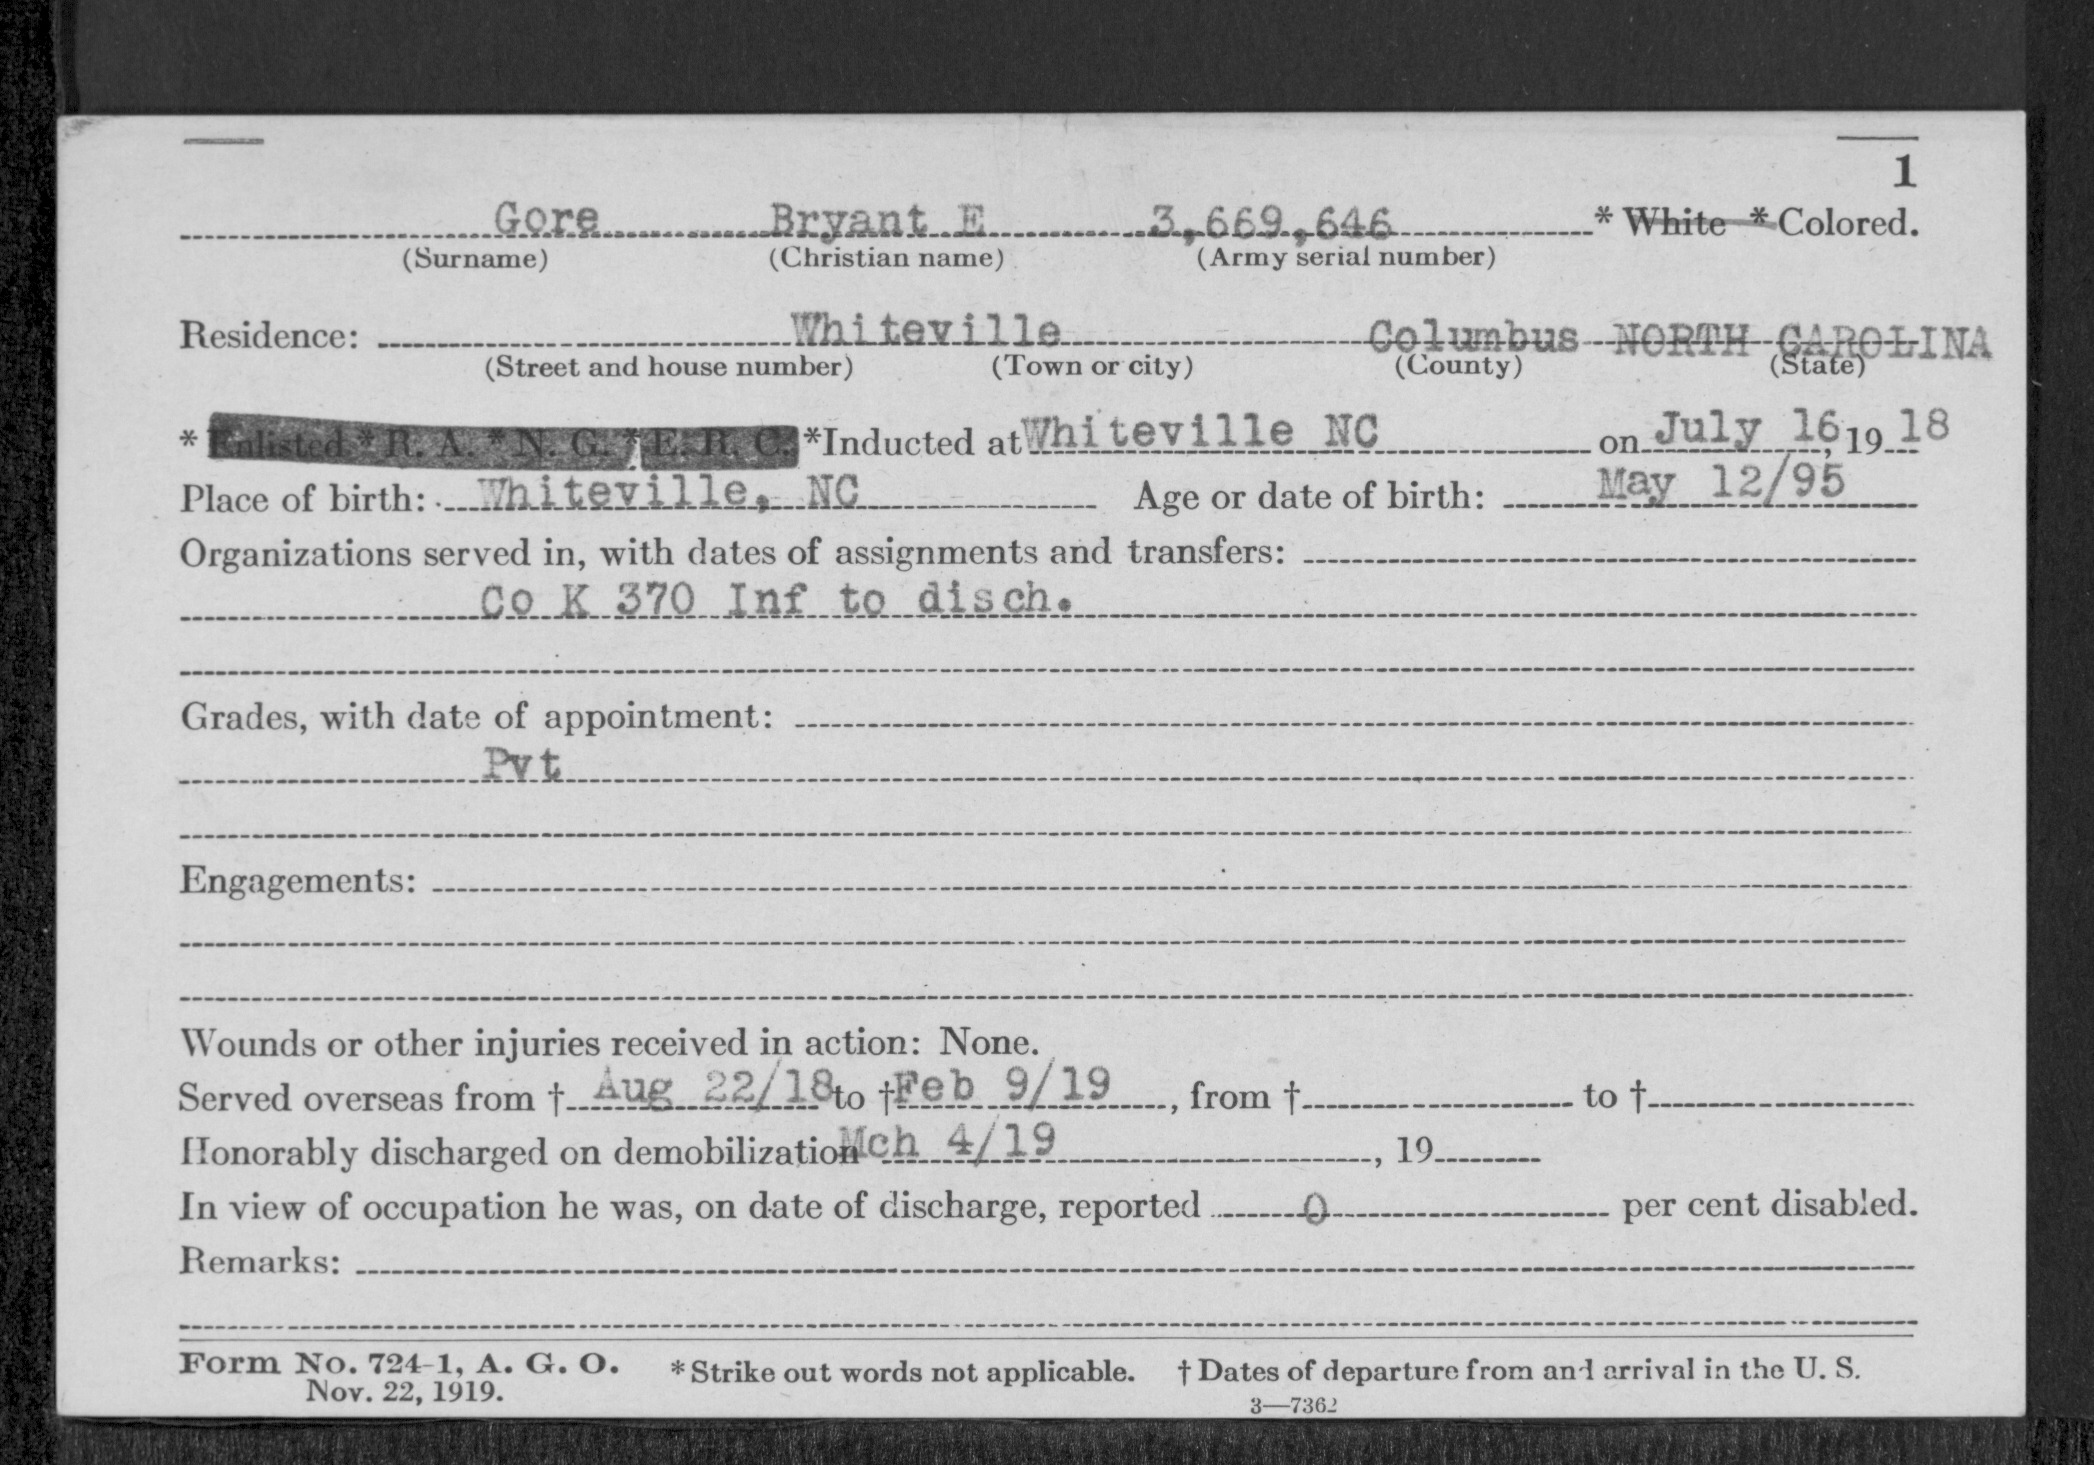 1
Gore Bryant E 3,669,646 * White * Colored.
(Surname) (Christian name) (Army serial number)
Residence: Whiteville Columbus NORTH CAROLINA
(Street and house number) (Town or city) (County) (State)
* Enlisted * R. A. * N. G. * E. R. C. *Inducted at Whiteville NC on July 16, 19 18
Place of birth: Whiteville, NC Age or date of birth: May 12/95
Organizations served in, with dates of assignments and transfers:
Co K 370 Inf to disch.
Grades, with date of appointment:
Pvt
Engagements:
Wounds or other injuries received in action: None.
Served overseas from † Aug 22/18 to † Feb 9/19, from † to †
Honorably discharged on demobilization Mch 4/19, 19
In view of occupation he was, on date of discharge, reported 0 per cent disabled.
Remarks:
Form No. 724-1, A. G. O. * Strike out words not applicable. † Dates of departure from and arrival in the U. S.
Nov. 22, 1919. 3—7362